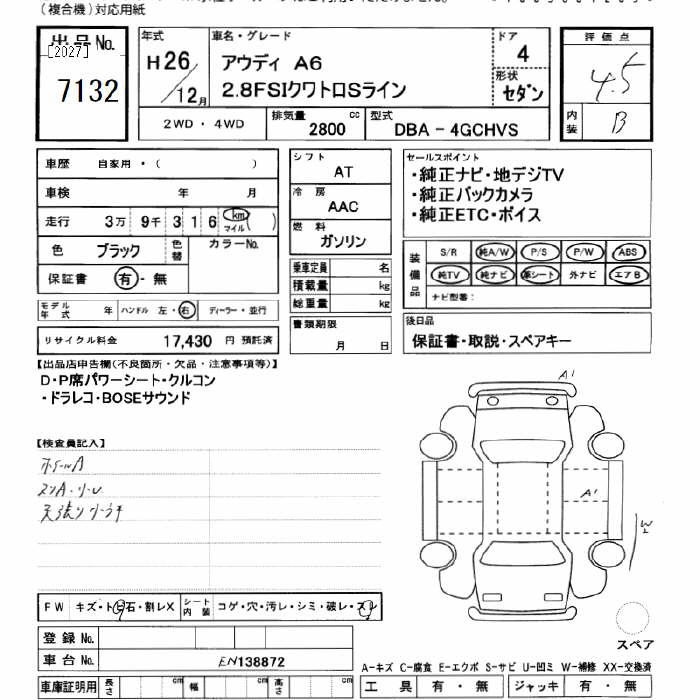 (複合機)対応用紙
出品No.
[2027]
7132
年式
H26/12月
車名・グレード
アウディ A6
2.8FSIクワトロSライン
ドア
4
形状
セダン
評価点
4.5
内装
B
2WD・4WD
排気量
2800 cc
型式
DBA-4GCHVS
車歴 自家用・( )
車検 年 月
走行 3万 9千 3 1 6 km マイル( )
色 ブラック 色替 カラーNo.
保証書 有・無
モデル年式 年 ハンドル 左・右 ディーラー・並行
リサイクル料金 17,430 円 預託済
シフト
AT
冷房
AAC
燃料
ガソリン
乗車定員 名
積載量 kg
総重量 kg
書類期限
月 日
セールスポイント
・純正ナビ・地デジTV
・純正バックカメラ
・純正ETC・ボイス
装備品
S/R 純A/W P/S P/W ABS
純TV 純ナビ 革シート 外ナビ エアB
ナビ型番:
後日品
保証書・取説・スペアキー
【出品店申告欄(不良箇所・欠品・注意事項等)】
D・P席パワーシート・クルコン
・ドラレコ・BOSEサウンド
【検査員記入】
ホイールA
天張り
A1
A1
W2
スペア
FW キズ・トビ石・割レX シート内装 コゲ・穴・汚レ・シミ・破レ・スレ
登録No.
車台No. EN138872
車庫証明用 長さ cm 幅 cm 高さ cm
A-キズ C-腐食 E-エクボ S-サビ U-凹ミ W-補修 XX-交換済
工具 有・無 ジャッキ 有・無